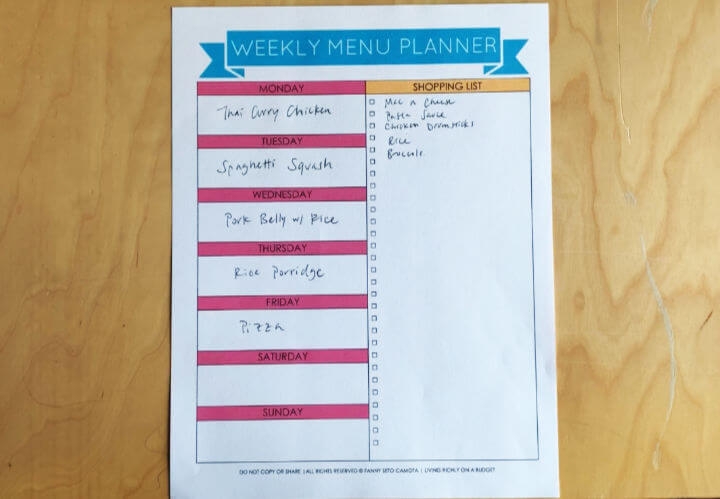 WEEKLY MENU PLANNER
MONDAY
Thai Curry Chicken
TUESDAY
Spaghetti Squash
WEDNESDAY
Pork Belly w/ Rice
THURSDAY
Rice Porridge
FRIDAY
Pizza
SATURDAY
SUNDAY
SHOPPING LIST
Mac n Cheese
Pasta Sauce
Chicken Drumsticks
Rice
Broccoli
DO NOT COPY OR SHARE | ALL RIGHTS RESERVED © FANNY SETO CAMOTA | LIVING RICHLY ON A BUDGET